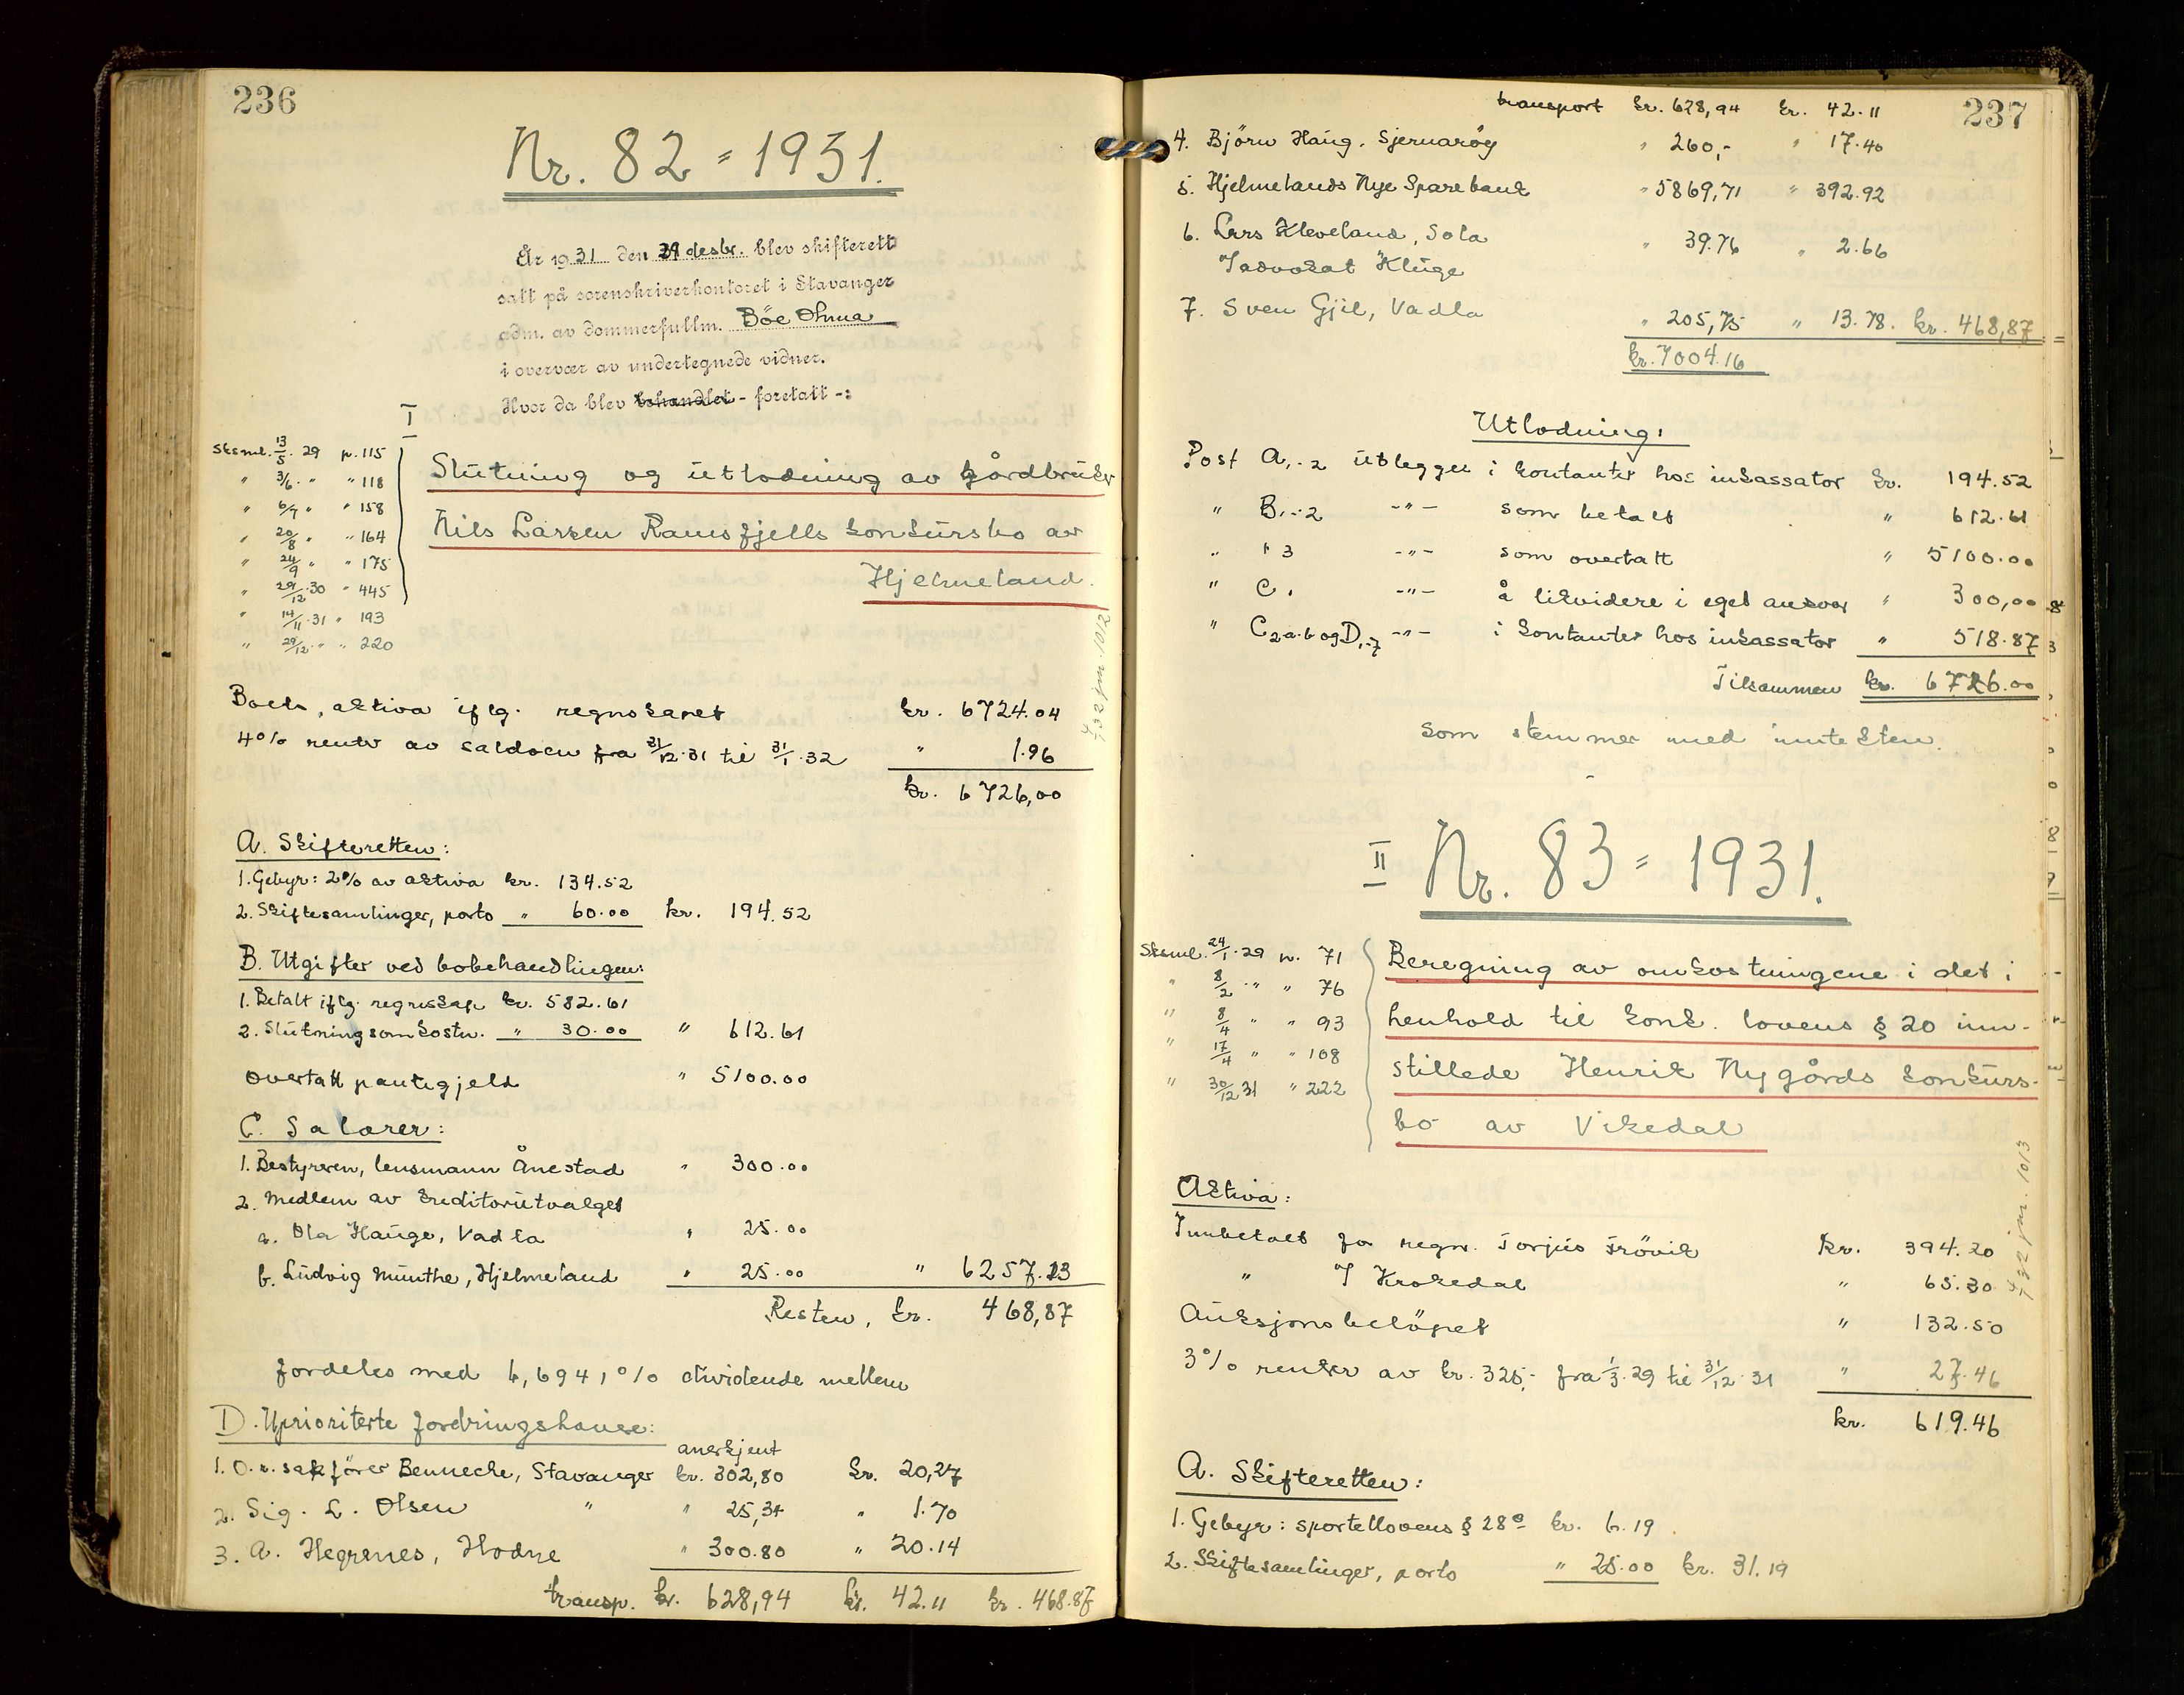 236
Nr. 82 = 1931.
År 1931 den 29 desbr. blev skifterett
satt på sorenskriverkontoret i Stavanger
adm. av dommerfullm. Böe
i overvær av undertegnede vidner.
Hvor da blev behandlet - foretatt -:
I
Sksml. 13/5. 29 p. 115
" 3/6 " " 118
" 6/7 " " 158
" 20/8 " " 164
" 24/9 " " 175
" 29/12 30 " 445
" 14/11 31 " 193
" 29/12 " " 220
Slutning og utlodning av gårdbruker
Nils Larsen Ramsfjells konkursbo av
Hjelmeland.
Boets aktiva iflg. regnskapet kr. 6724.04
4% renter av saldoen fra 31/12.31 til 31/1.32 " 1.96
kr. 6726,00
A. Skifteretten:
1. Gebyr: 2% av aktiva kr. 134.52
2. Skiftesamlinger, porto " 60.00 kr. 194.52
B. Utgifter ved bobehandlingen:
1. Betalt iflg. regnskap kr. 582.61
2. Slutningsomkostn. " 30.00 " 612.61
overtatt pantegjeld " 5100.00
C. Salærer:
1. Bestyreren, lensmann Ånestad " 300.00
2. Medlem av kreditorutvalget
a. Ola Hauge, Vadla " 25.00
b. Ludvig Munthe, Hjelmeland " 25.00 " 6257.13
Resten, kr. 468,87
fordeles med 6,6941% dividende mellem
D. Uprioriterte fordringshavere:
anerkjent
1. O.r.sakfører Benneche, Stavanger kr. 302,80 kr. 20,27
2. Sig. L. Olsen " " 25,34 " 1.70
3. A. Hegrenes, Hodne " 300.80 " 20.14
transp. kr. 628,94 kr. 42.11 kr. 468.87
237
transport kr. 628,94 kr. 42.11
4. Björn Haug, Sjernaröy " 260,- " 17.40
5. Hjelmelands Nye Sparebank " 5869,71 " 392.92
6. Lars Kleveland, Sola " 39.76 " 2.66
7. Sven Gjil, Vadla " 205,75 " 13.78. kr. 468,87
kr. 7004.16
Utlodning:
Post A,1-2 utlegges i kontanter hos inkassator kr. 194.52
" B,1-2 -"- som betalt " 612.61
" " 3 -"- som overtatt " 5100.00
" C1 -"- å likvidere i eget ansvar " 300,00
" C2 a.b og D1-7 -"- i kontanter hos inkassator " 518.87
Tilsammen kr. 6726.00
som stemmer med inntekten.
II Nr. 83 = 1931.
Sksml. 24/1.29 p. 71
" 8/2 " " 76
" 8/4 " " 93
" 17/4 " " 108
" 30/12 31 " 222
Beregning av omkostningene i det i
henhold til konk. lovens § 20 inn-
stillede Henrik Nygårds konkurs-
bo av Vikedal
Aktiva:
Innbetalt for regn. Torjus Frövik kr. 394.20
" T Krokedal " 65.30
Auksjonsbelöpet " 132.50
3% renter av kr. 325,- fra 1/3.29 til 31/12.31 " 27.46
kr. 619.46
A. Skifteretten:
1. Gebyr: sportellovens § 28 e kr. 6.19
2. Skiftesamlinger, porto " 25.00 kr. 31.19